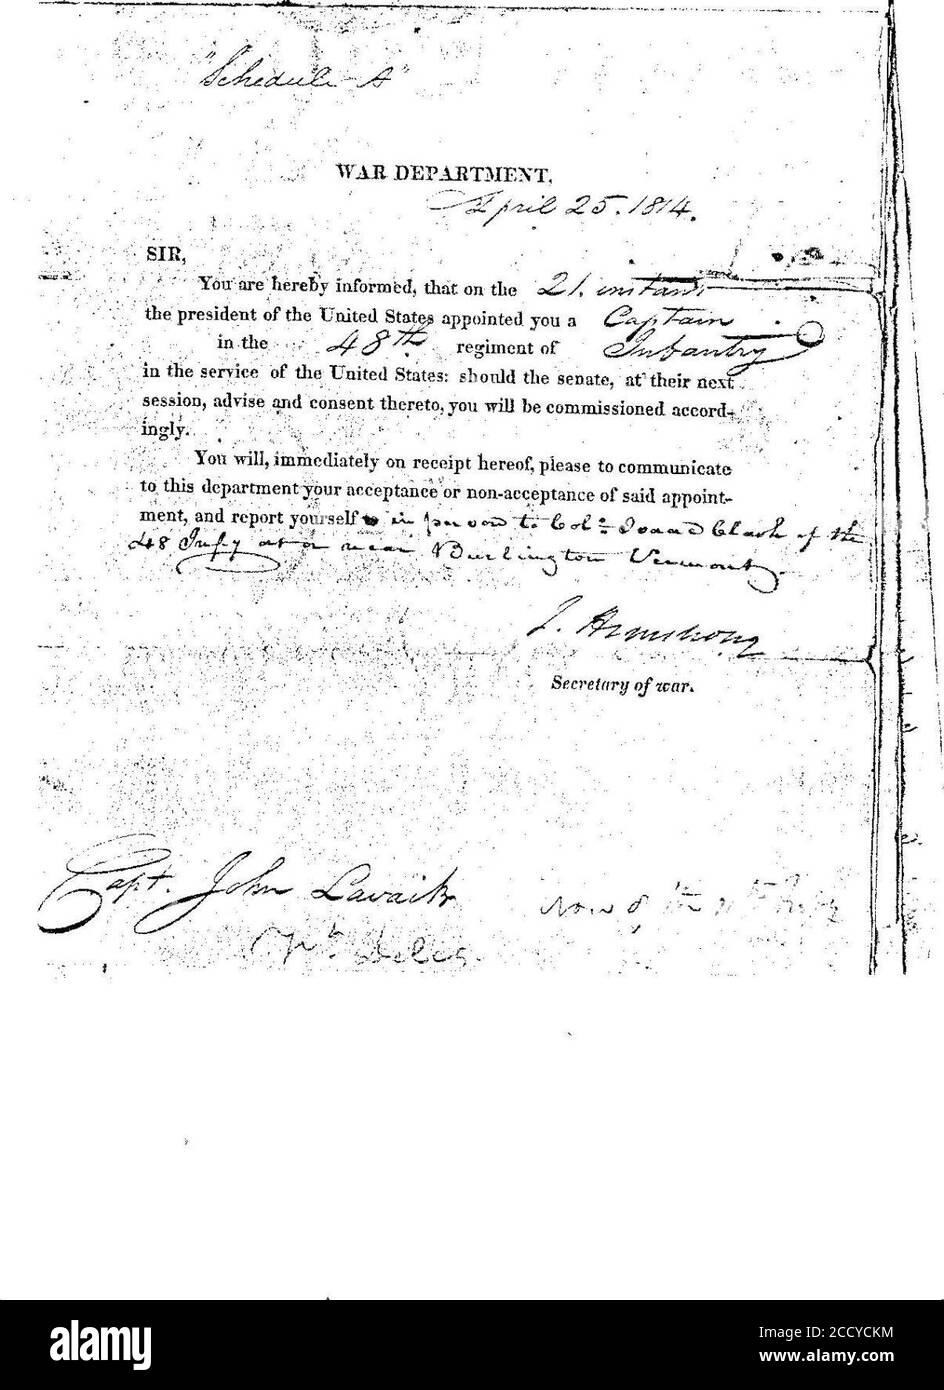 "Schedule A"
WAR DEPARTMENT,
April 25. 1814.
SIR,
You are hereby informed, that on the 21. instant
the president of the United States appointed you a Captain
in the 48th regiment of Infantry
in the service of the United States: should the senate, at their next
session, advise and consent thereto, you will be commissioned accord-
ingly.
You will, immediately on receipt hereof, please to communicate
to this department your acceptance or non-acceptance of said appoint-
ment, and report yourself in person to Colo. Isaac Clark of the
48 Infy at or near Burlington Vermont.
J. Armstrong
Secretary of war.
Capt. John
alamy
alamy
Image ID: 2CCYCKM
www.alamy.com